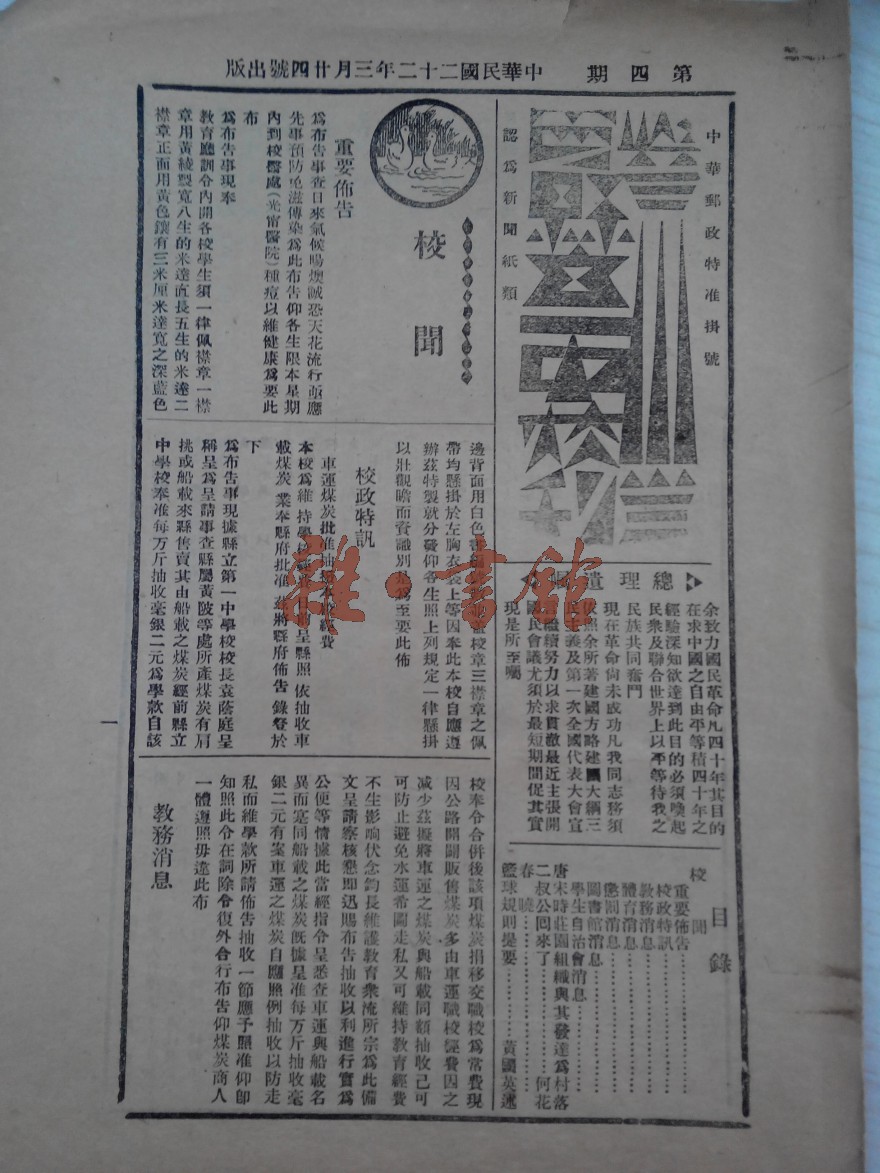 第四期　中華民國二十二年三月廿四號出版
中華郵政特准掛號
認爲新聞紙類
總理遺囑
余致力國民革命凡四十年其目的
在求中國之自由平等積四十年之
經驗深知欲達到此目的必須喚起
民衆及聯合世界上以平等待我之
民族共同奮鬥
現在革命尙未成功凡我同志務須
依照余所著建國方略建國大綱三
民主義及第一次全國代表大會宣
言繼續努力以求貫澈最近主張開
國民會議尤須於最短期間促其實
現是所至囑
目錄
校聞
重要佈告
校政特訊
教務消息
體育消息
懲罰消息
圖書館消息
學生自治會消息
唐宋時莊園組織與其發達爲村落
二叔公囘來了…………何花
春曉
籃球規則提要…………黃國英述
校聞
重要佈告
爲布告事查日來氣候暘燠誠恐天花流行亟應
先事預防免滋傳染爲此布告仰各生限本星期
內到校醫處（光甯醫院）種痘以維健康爲要此
布
爲布告事現奉
教育廳訓令內開各校學生須一律佩襟章一襟
章用黃綾製寬八生的米達直長五生的米達二
襟章正面用黃色鑲有三米厘米達寬之深藍色
邊背面用白色蓋校章三襟章之佩
帶均懸掛於左胸衣袋上等因奉此本校自應遵
辦茲特製就分發仰各生照上列規定一律懸掛
以壯觀瞻而資識別是爲至要此佈
校政特訊
車運煤炭批准抽經費
本校爲維持學呈縣照依抽收車
載煤炭業奉縣府批准茲將縣府佈告錄登於
下
爲布告事現據縣立第一中學校校長袁蔭庭呈
稱呈爲呈請事查縣屬黃陂等處所產煤炭有肩
挑或船載來縣售賣其由船載之煤炭經前縣立
中學校奉准每万斤抽收毫銀二元爲學款自該
校奉令合併後該項煤炭捐移交職校爲常費現
因公路開闢販售煤炭多由車運職校經費因之
减少茲擬將車運之煤炭與船載同額抽收已可
可防止避免水運希圖走私又可維持教育經費
不生影响伏念鈞長維護教育衆流所宗爲此備
文呈請察核懇卽迅賜布告抽收以利進行實爲
公便等情據此當經指令呈悉查車運與船載名
異而寔同船載之煤炭旣據呈准每万斤抽收毫
銀二元有案車運之煤炭自應照例抽收以防走
私而維學款所請佈告抽收一節應予照准仰卽
知照此令在詞除令復外合行布告仰煤炭商人
一體遵照毋違此布
教務消息
一
雜·書館